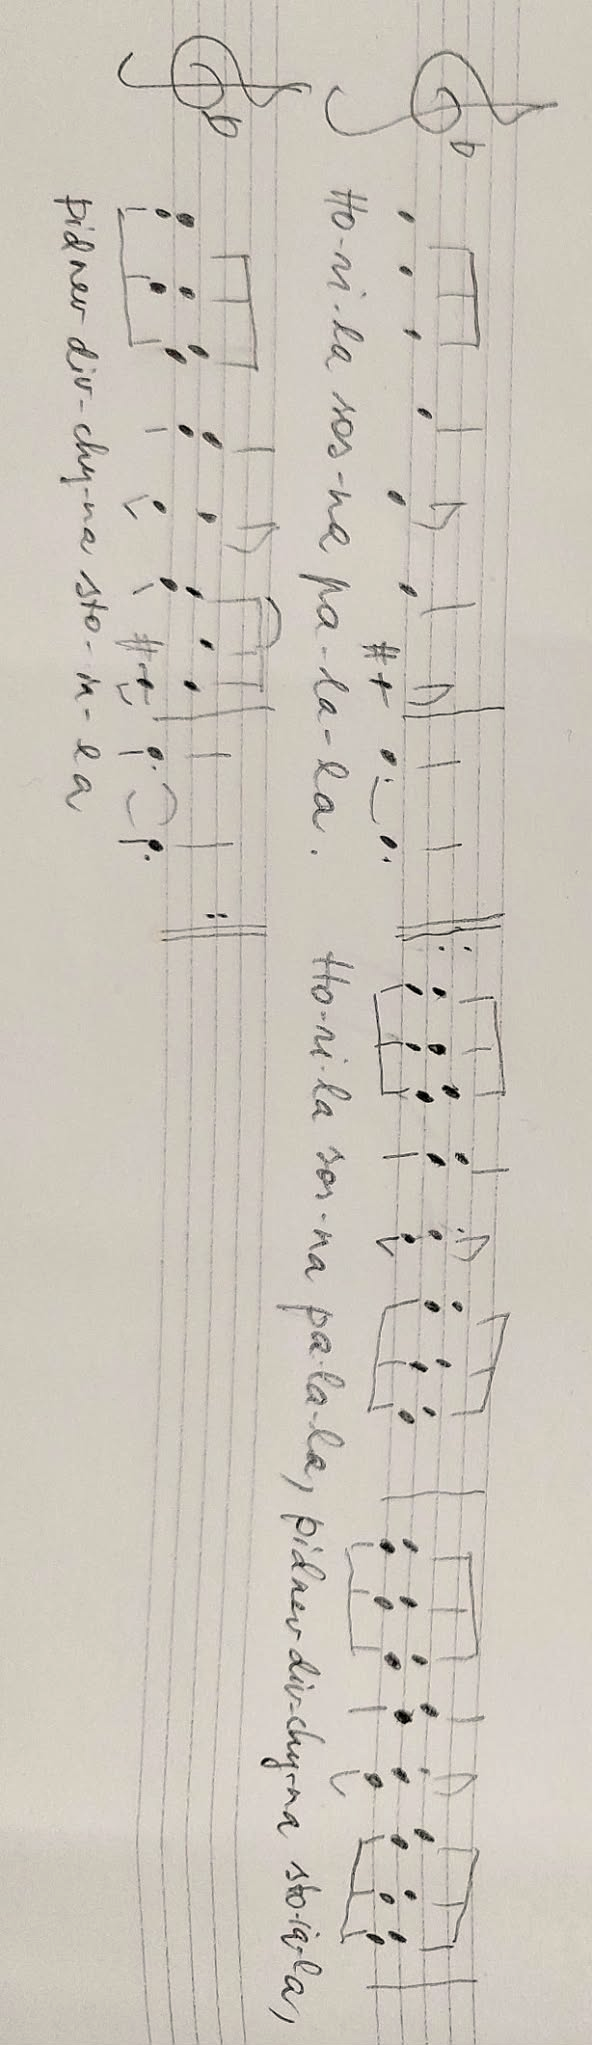 Ho-ri-la sos-na pa-la-la. Ho-ri-la sos-na pa-la-la, pid nev div-chy-na sto-ia-la,
pid nev div-chy-na sto-ia-la